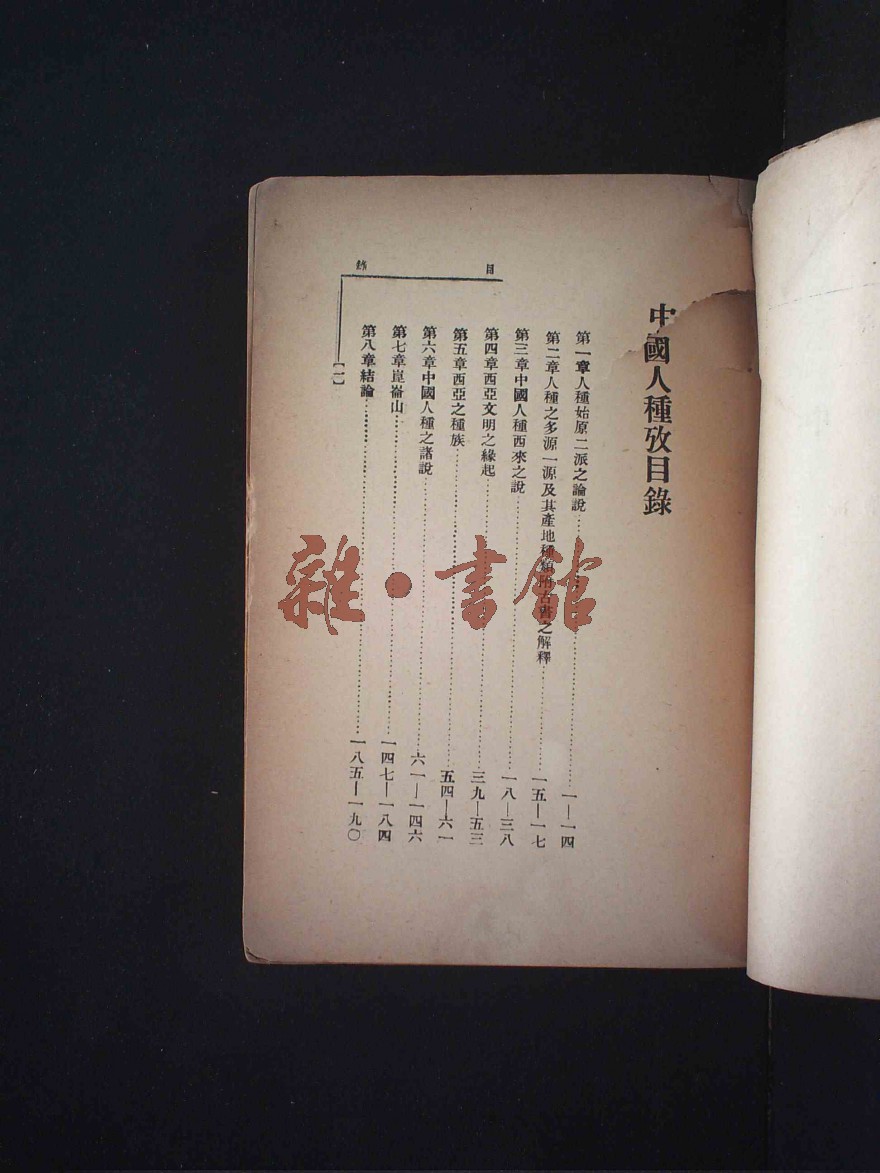 中國人種攷目錄
第一章人種始原二派之論說……一—一四
第二章人種之多源一源及其產地種類附古書之解釋……一五—一七
第三章中國人種西來之說……一八—三八
第四章西亞文明之緣起……三九—五三
第五章西亞之種族……五四—六一
第六章中國人種之諸說……六一—一四六
第七章崑崙山……一四七—一八四
第八章結論……一八五—一九〇
目錄
〔一〕
雜·書館